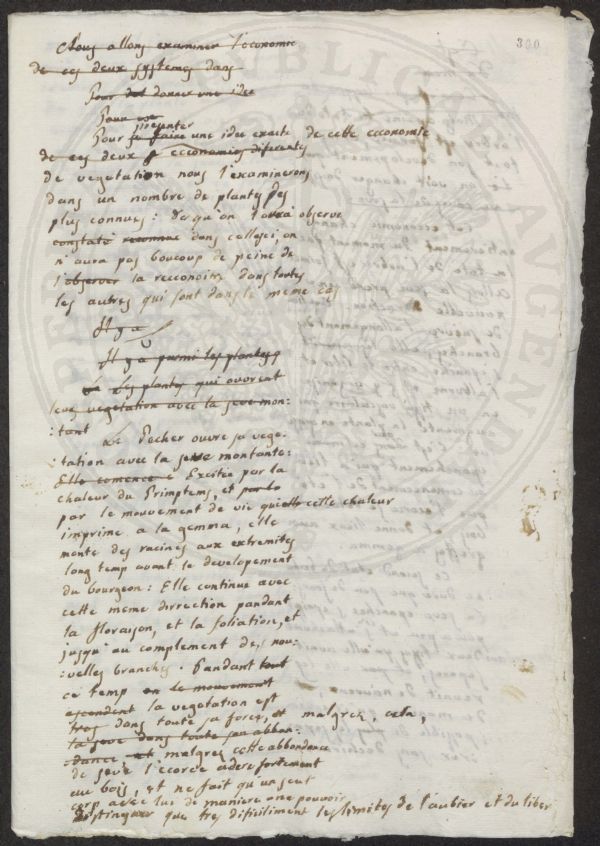 300
Nous allons examiner l'economie
de ces deux systemes dans
Pour donner une idee
Pour
presenter
Pour se faire une idee exacte de cette economie
de ces deux economies diferentes
de vegetation nous l'examinerons
dans un nombre de plantes des
plus connues: observe
constaté reconnue dans celles ci, on
n'aura pas boucoup de peine de
l'observer la reconoitre dans toutes
les autres qui sont dans le meme cas
Il y a
Il y a parmi les plantes
Les plantes qui ouvrent
leur vegetation avec la seve mon:
:tant
Le Pecher ouvre sa vege:
:tation avec la seve montante:
Elle comence Excitée par la
chaleur du Primptems, et
par le mouvement de vie que cette chaleur
imprime a la gemma, elle
monte des racines aux extremites
long temp avant le developement
du bourgeon: Elle continue avec
cette meme dirrection pandant
la floraison, et la foliation, et
jusqu'au complement des nou:
:velles branches. Pandant tout
ce temp le mouvement
escendent la vegetation est
dans toute sa force, et malgrez, cela,
la seve dans toute son abbon:
:dance, et malgrez cette abbondance
de seve l'ecorce adere fortement
au bois, et ne fait qu'un seul
corp avec lui de maniere a ne pouvoir
distinguer que tres dificilment les limites de l'aubier et du liber